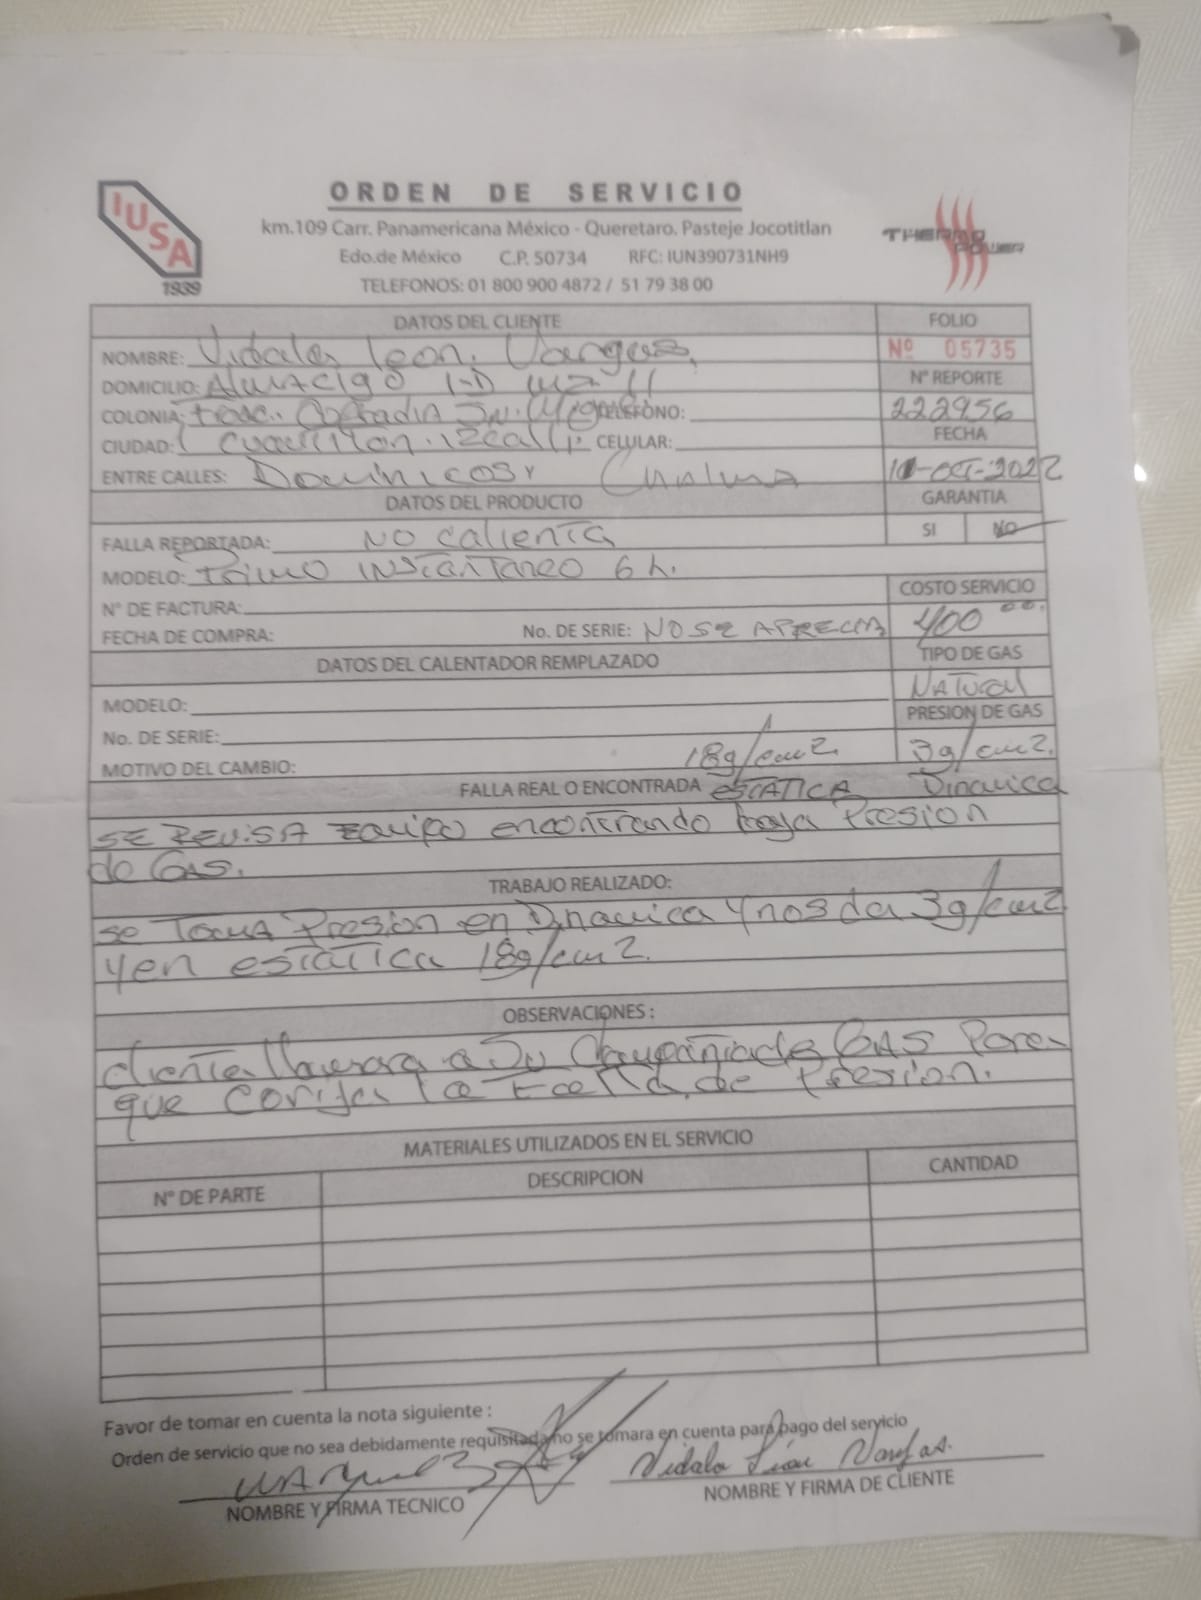 ORDEN DE SERVICIO
IUSA
1939
km.109 Carr. Panamericana México - Queretaro. Pasteje Jocotitlan
THERMO POWER
Edo.de México C.P. 50734 RFC: IUN390731NH9
TELEFONOS: 01 800 900 4872 / 51 79 38 00
DATOS DEL CLIENTE
FOLIO
NOMBRE: Vidala leon. Vargas
Nº 05735
DOMICILIO: 1-D mz 11
Nº REPORTE
COLONIA: Fracc. Cofradia Sn. Mig TELEFONO:
222956
CIUDAD: Cuautitlan. izcalli. CELULAR:
FECHA
ENTRE CALLES: Dominicos y Chalma
-oct-2022
DATOS DEL PRODUCTO
GARANTIA
FALLA REPORTADA: NO calienta
SI NO
MODELO: Primo INStantaneo 6 h.
Nº DE FACTURA:
COSTO SERVICIO
FECHA DE COMPRA: No. DE SERIE: NO SE APRECIA
400 00.
DATOS DEL CALENTADOR REMPLAZADO
TIPO DE GAS
MODELO:
NATural
No. DE SERIE:
PRESION DE GAS
MOTIVO DEL CAMBIO: 18g/cm2. 3g/cm2.
FALLA REAL O ENCONTRADA ESTATICA Dinamica
SE REVISA Equipo encontrando baja Presion
de GAS.
TRABAJO REALIZADO:
se Toma Presion en Dinamica y nos da 3g/cm2
y en estatica 18g/cm2.
OBSERVACIONES :
cliente llamara a Su Compañia de GAS Para
que corija la Falla de Presion.
MATERIALES UTILIZADOS EN EL SERVICIO
Nº DE PARTE DESCRIPCION CANTIDAD
Favor de tomar en cuenta la nota siguiente :
Orden de servicio que no sea debidamente requisitada no se tomara en cuenta para pago del servicio
Vidala León Vargas.
NOMBRE Y FIRMA TECNICO NOMBRE Y FIRMA DE CLIENTE